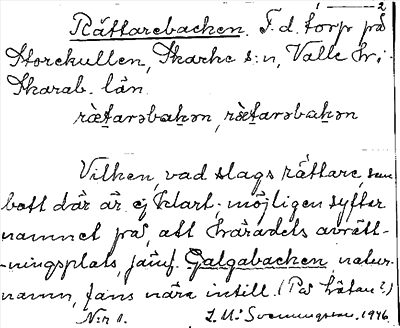 Rättarebacken. F. d. torp på
Storekullen, Skarke s:n, Valle hd.
Skarab. län.
Vilken, vad slags rättare, som
bott där är ej klart; möjligen syftar
namnet på, att häradets avrätt-
-ningsplats, jämf. Galgabacken, natur-
namn, fans nära intill. (På
Nr 11. 1946.